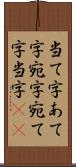 当て字あて
字宛字宛て
字当字